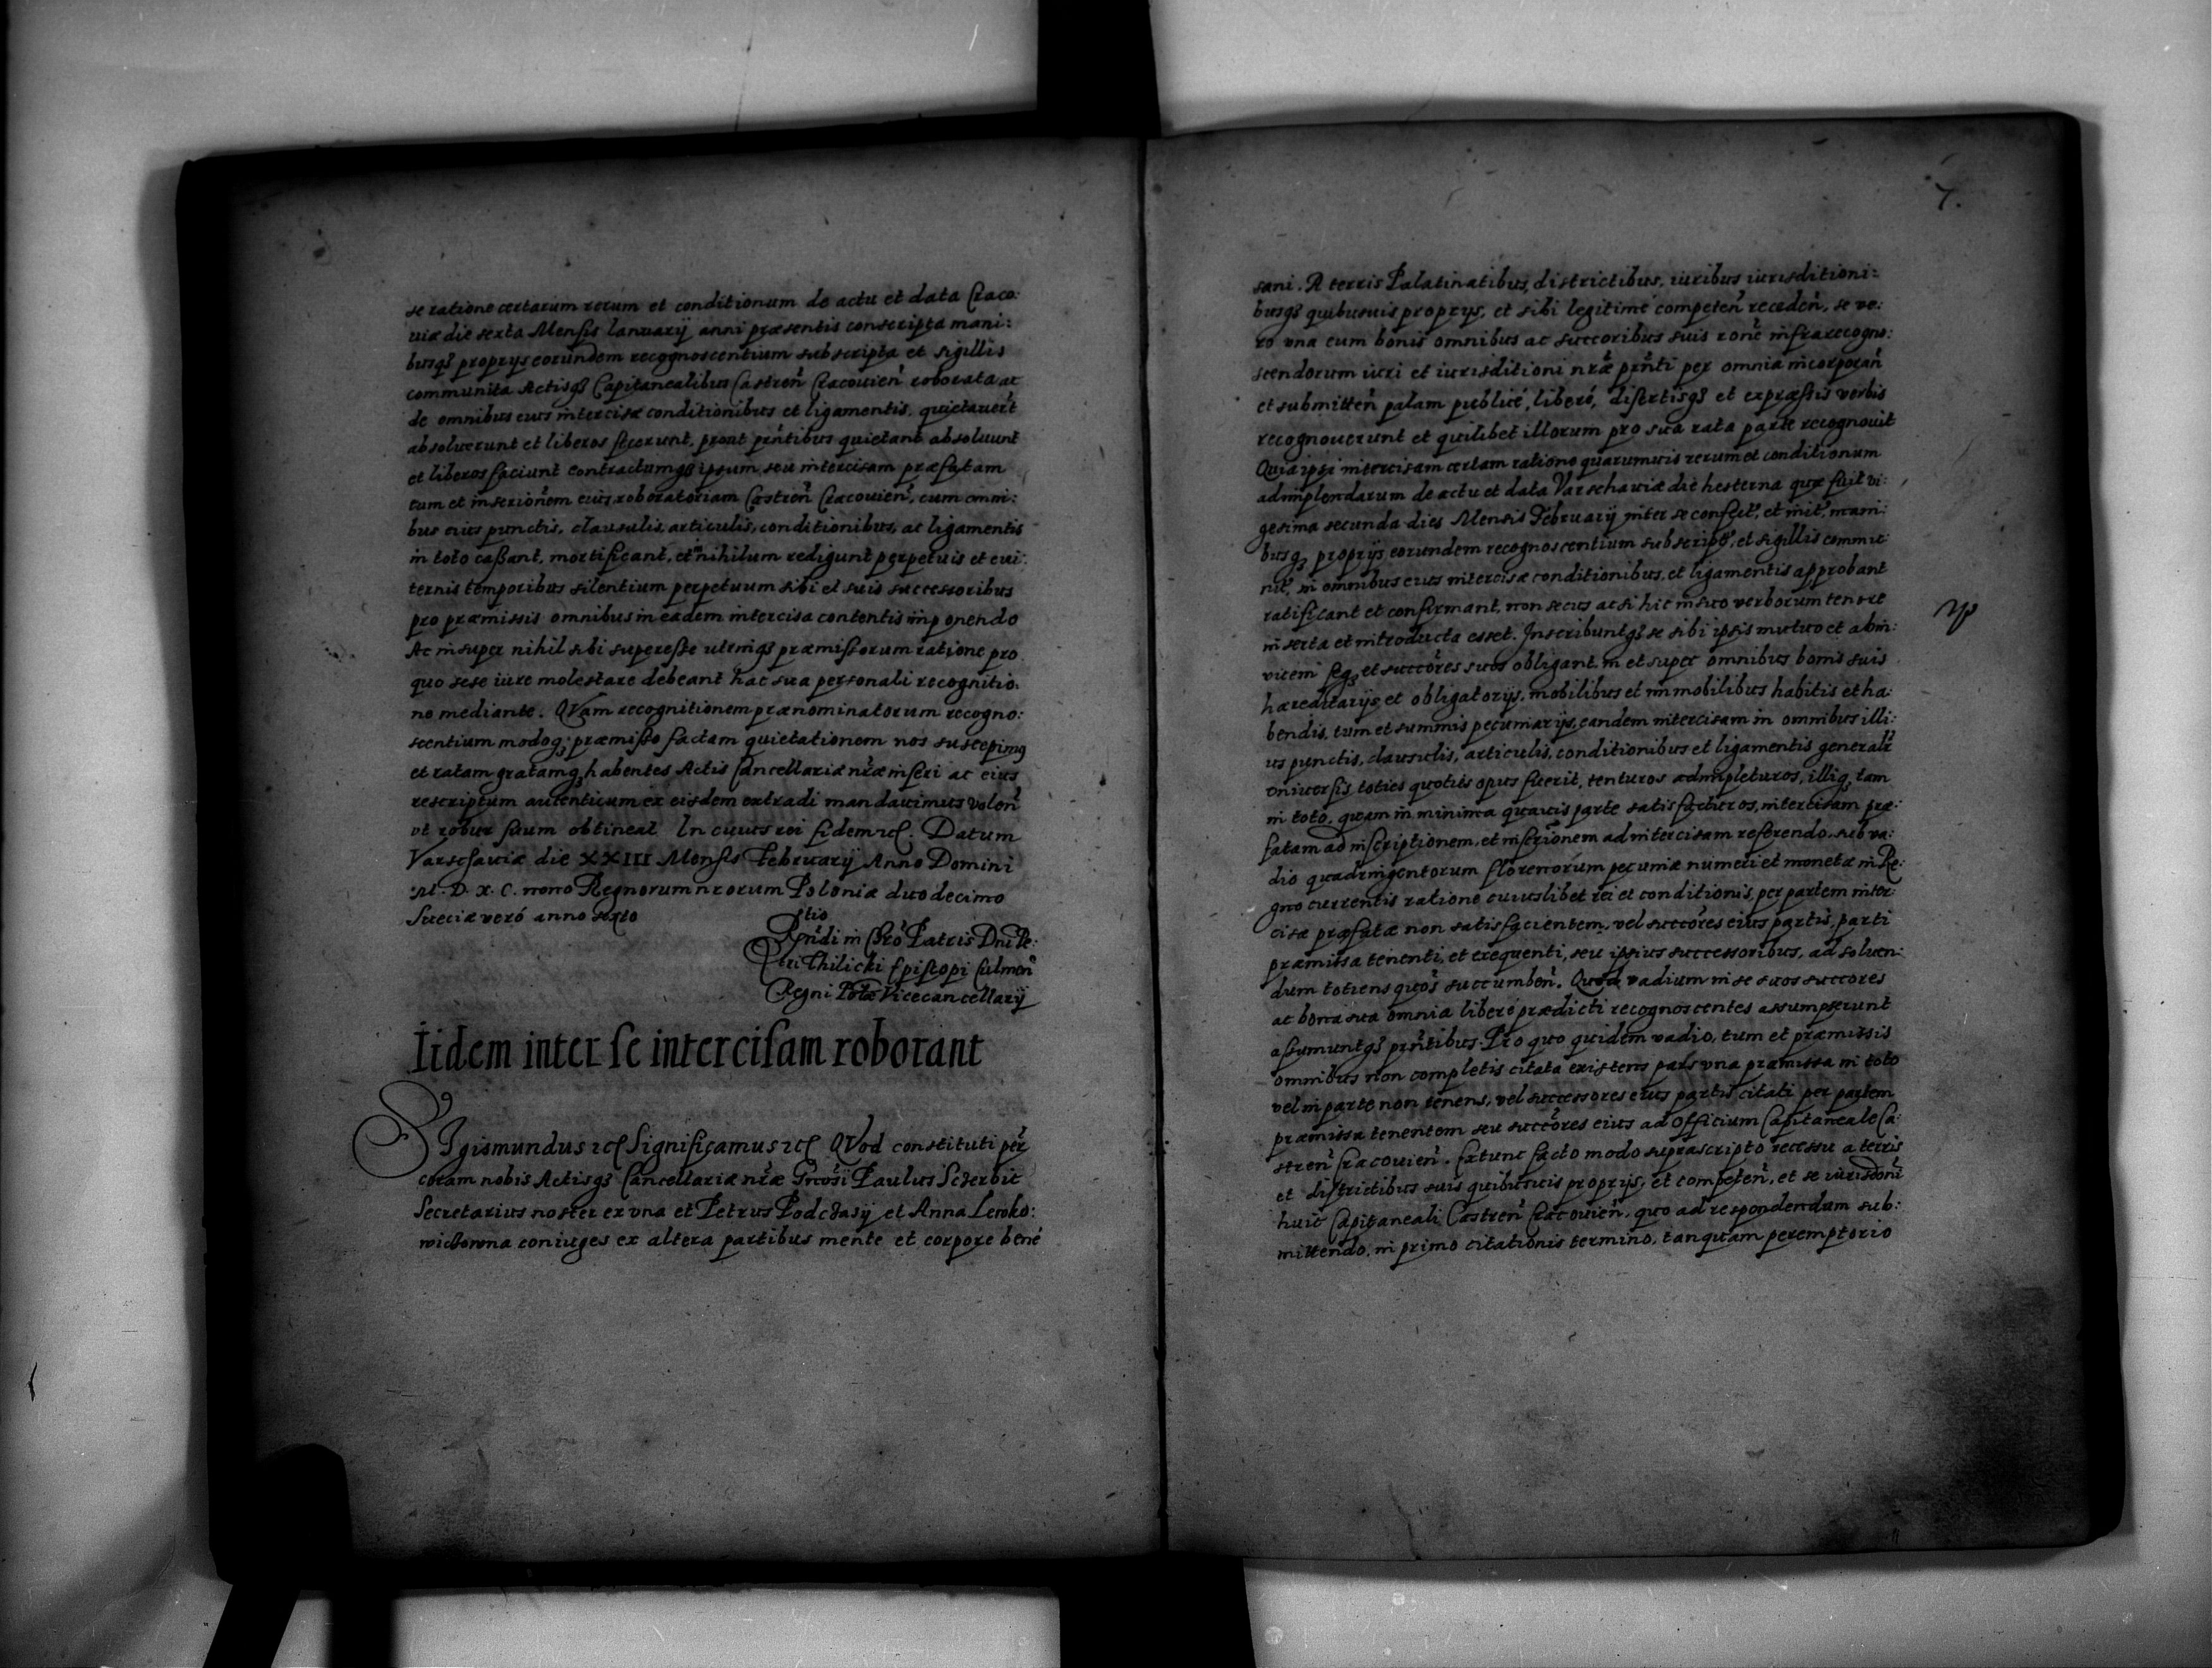 se ratione certarum rerum et conditionum de actu et data Craco:
uiæ die sexta Mensis Ianuarÿ anni præsentis conscripta mani:
busq₃ proprÿs eorundem recognoscentium subscripta et sigillis
communita Actisq₃ Capitanealibus Castreñ Cracouieñ roborata ac
de omnibus eius intercisæ conditionibus et ligamentis, quietauert̃
absoluerunt et liberos fecerunt, prout pr̃ntibus quietant absoluunt
et liberos faciunt contractumq₃ ipsum seu intercisam præfatam
tum et inserioñem eius roboratoriam Castreñ Cracouieñ, cum omni:
bus eius punctis, clausulis, articulis, conditionibus, ac ligamentis
in toto caßant, mortificant, et in nihilum redigunt perpetuis et eui:
ternis temporibus silentium perpetuum sibi et suis successoribus
pro præmissis omnibus in eadem intercisa contentis imponendo
Ac insuper nihil sibi superesse utrinq₃ præmissorum ratione pro
quo sese iure molestare debeant hac sua personali recognitio:
ne mediante. QVam recognitionem prænominatorum recogno:
scentium modoq₃ præmisso factam quietationem nos suscepimq
et ratam gratamq₃ habentes Actis Cancellariæ nr̃æ inseri ac eius
rescriptum autenticum ex eisdem extradi mandauimus voleñ
vt robur suum obtineat In cuius rei fidem etc. Datum
Varschauiæ die XXIII Mensis Februarÿ Anno Domini
M. D. X. C. nono Regnorum nrorum Poloniæ duodecimo
Sueciæ veró anno sexto
Rtio
Rñdi in Chrõ Patris Dni Pe:
tri Thilicki Episcopi Culmeñ
Regni Poloẽ Vicecancellarÿ
Iidem inter se intercisam roborant
SIgismundus etc Significamus etc QVod constituti per̃
coram nobis Actisq₃ Cancellariæ nr̃æ Gñosi Paulus Sczerbic
Secretarius noster ex vna et Petrus Podczasÿ et Anna Leroko:
wiczowna coniuges ex altera partibus mente et corpore bené
7.
sani. A terris Palatinatibus, districtibus, iuribus iurisditioni:
busq₃ quibusuis proprÿs, et sibi legitimé competeñ recedeñ, se ve:
ro vna cum bonis omnibus ac succoribus suis ronẽ infrarecogno:
scendorum iuri et iurisditioni nr̃æ pr̃nti per omnia incorporañ
et submitteñ palam publicé, liberé, disertisq₃ et expræssis verbis
recognouerunt et quilibet illorum pro sua rata parte recognouit
Quia ipsi intercisam certam ratione quarumuis rerum et conditionum
adimplendarum de actu et data Varschauiæ die hesterna quæ fuit vi:
gesima secunda dies Mensis Februarÿ inter se confect̃, et init̃, mani:
busq₃ proprÿs eorundem recognoscentium subscript̃, et sigillis commu:
nit̃, in omnibus eius intercisæ conditionibus, et ligamentis approbant
ratificant et confirmant, non secus ac si hic in suo verborum tenore
inserta et introducta esset. Inscribuntq₃ se sibi ipsis mutuo et abin:
np
vicem seq₃ et succores suos obligant in et super omnibus bonis suis
hæreditarÿs et obligatorÿs, mobilibus et immobilibus habitis et ha:
bendis, tum et summis pecuniarÿs, eandem intercisam in omnibus illi:
us punctis, clausulis, articulis, conditionibus et ligamentis generalr̃
vniuersis, toties quoties opus fuerit, tenturos adimpleturos, illiq₃ tam
in toto, quam in minima quauis parte satisfacturos, intercisam præ:
fatam ad inscriptionem, et inserionem ad intercisam referendo, sub va:
dio quadringentorum florenorum pecuniæ numeri et monetæ in Re:
gno currentis ratione cuiuslibet rei et conditionis, per partem inter:
cisæ præfatæ non satisfacientem, vel succores eius partis, parti
præmissa tenenti, et exequenti, seu ipsius successoribus, ad soluen:
dum totiens quoẽs succumbeñ. Quod vadium in se suos succores
ac bona sua omnia liberé prædicti recognoscentes assumpserunt
assumuntq₃ pr̃ntibus. Pro quo quidem vadio, tum et præmissis
omnibus non completis citata existens pars vna præmissa in toto
vel in parte non tenens, vel successores eius partis citati per partem
præmissa tenentem seu succores eius ad Officium Capitaneale Ca:
streñ Cracouieñ. Extunc facto modo suprascripto recessu a terris
et districtibus suis quibusuis proprÿs, et competeñ, et se iurisdoni
huic Capitaneali Castreñ Cracouieñ, quo ad respondendum sub:
mittendo, in primo citationis termino, tanquam peremptorio